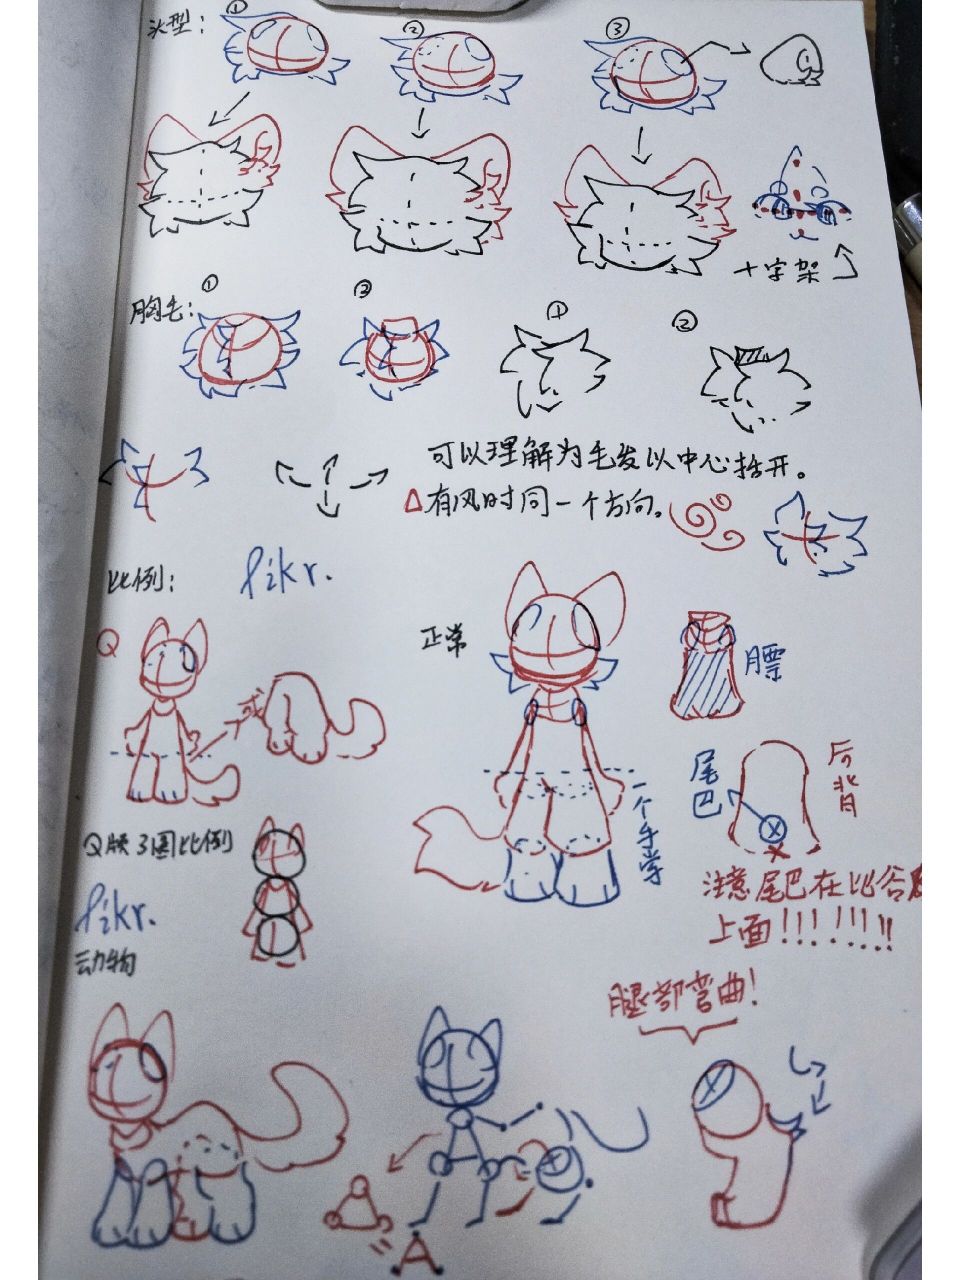 头型：
①
②
③
十字架
胸毛：
①
③
①
②
可以理解为毛发以中心括开。
△有风时同一个方向。
比例：
fikr.
Q
或
正常
膘
尾巴
后背
一个手掌
Q版3圆比例
注意尾巴在屁谷
上面！！！！！！！
fikr.
动物
腿部弯曲！
A